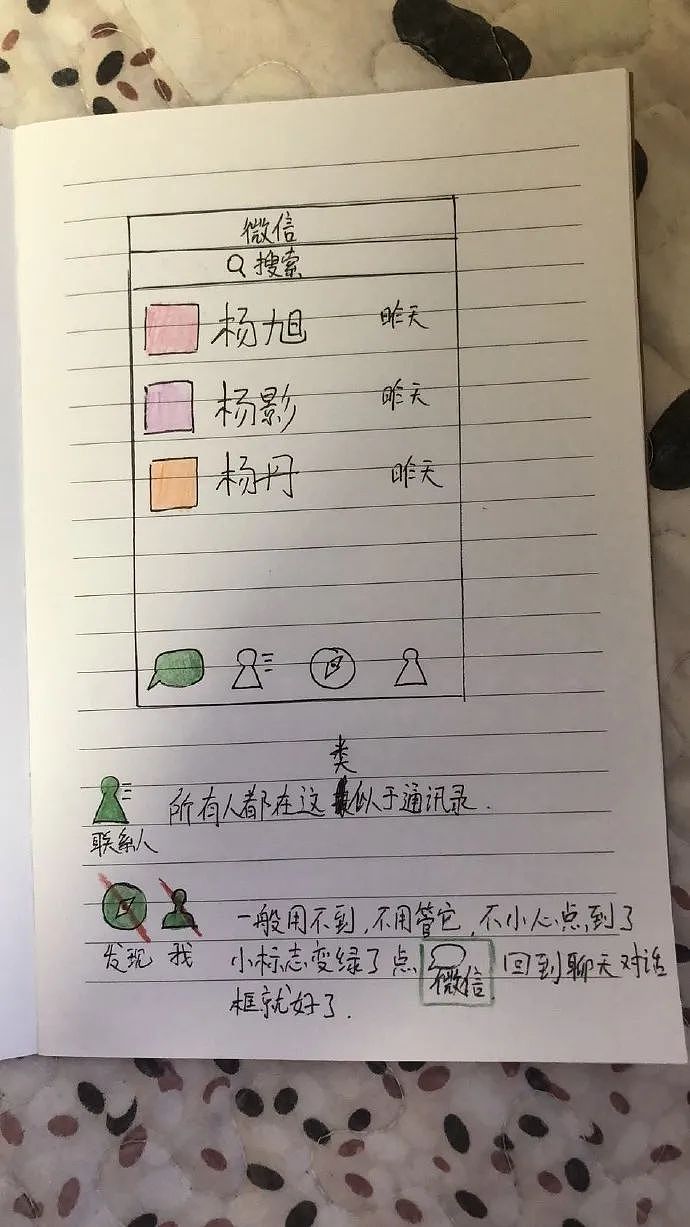 微信
Q 搜索
杨旭 昨天
杨影 昨天
杨丹 昨天
类
所有人都在这 似于通讯录.
联系人
一般用不到,不用管它,不小心点到了
发现 我 小标志变绿了点 微信 回到聊天对话
框就好了.